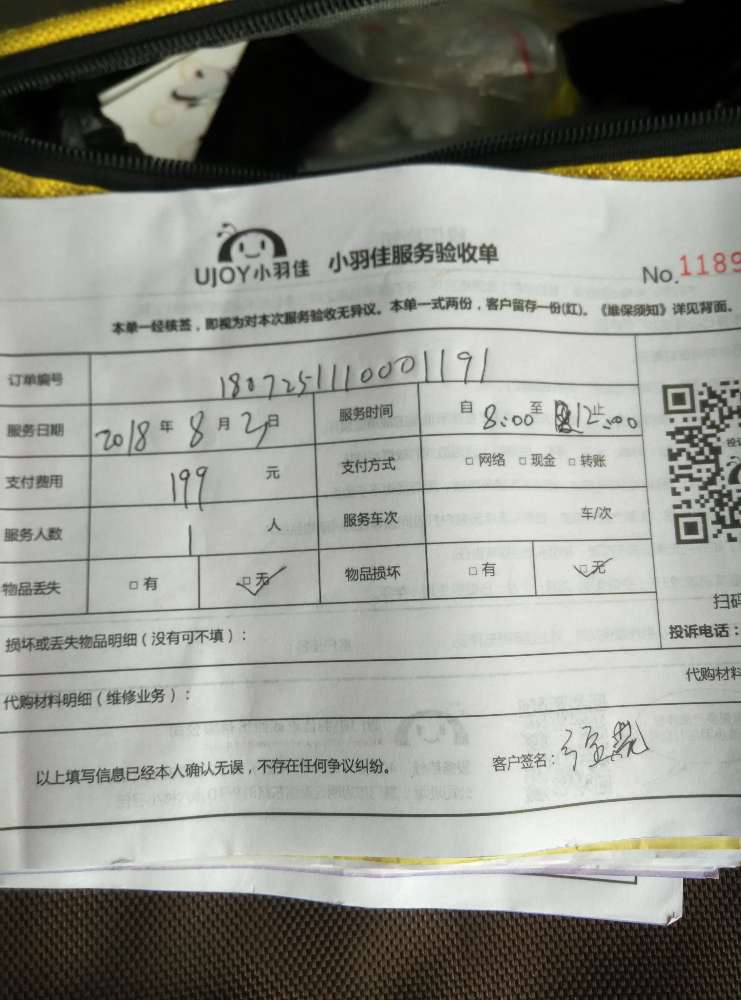 UJOY小羽佳 小羽佳服务验收单
No.1189
本单一经核签，即视为对本次服务验收无异议。本单一式两份，客户留存一份(红)。《维保须知》详见背面。
订单编号 1807251110001191
服务日期 2018年8月2日 服务时间 自8:00至12:00止
支付费用 199元 支付方式 □网络 □现金 □转账
服务人数 1人 服务车次 车/次
物品丢失 □有 □无 物品损坏 □有 □无
扫码
损坏或丢失物品明细（没有可不填）： 投诉电话：
代购材料明细（维修业务）： 代购材料
以上填写信息已经本人确认无误，不存在任何争议纠纷。 客户签名：